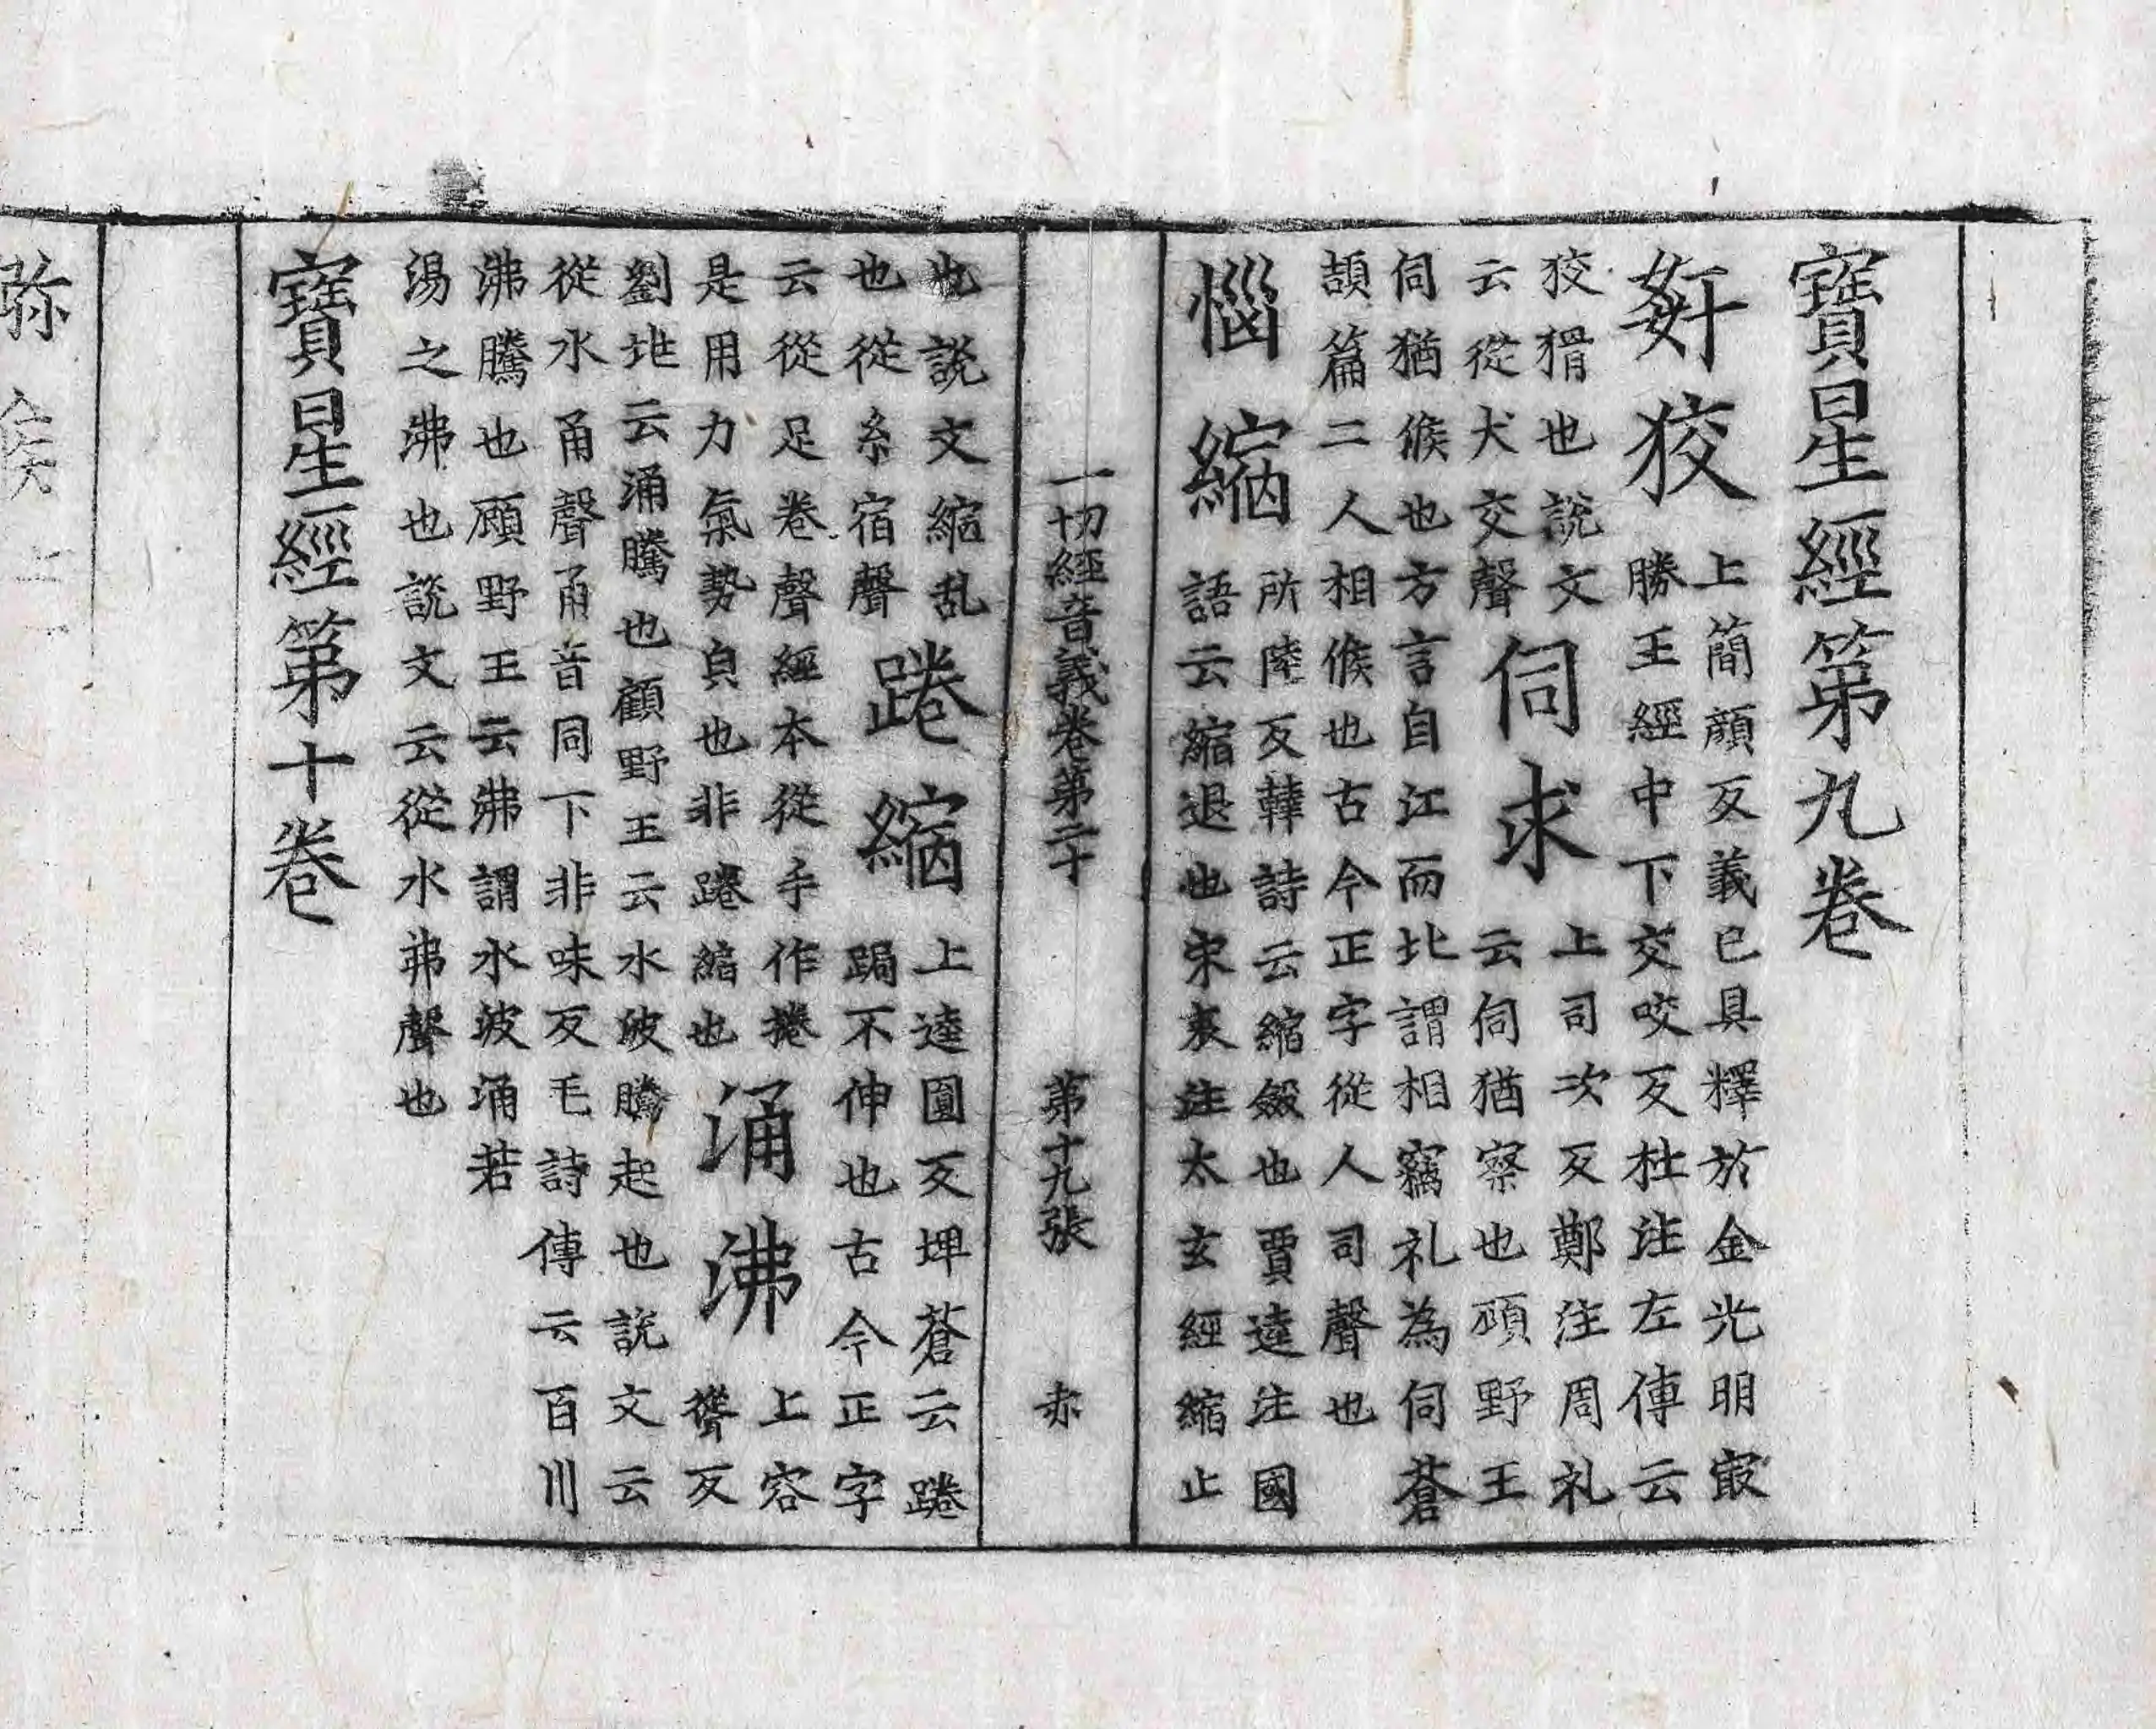 寶星經第九卷
奸狡 上簡顔反義已具釋於金光明㝡
勝王經中下交咬反杜注左傳云
狡猾也説文
云從犬交聲 伺求 上司次反鄭注周礼
云伺猶察也頋野王
伺猶候也方言自江而北謂相竊礼為伺蒼
頡篇二人相候也古今正字從人司聲也
惱縮 所陸反韓詩云縮斂也賈逵注國
語云縮退也宋衷注太玄經縮止
一切經音義卷第二十 第十九張 赤
也説文縮乱
也從糸宿聲 踡縮 上逵圓反埤蒼云踡
跼不伸也古今正字
云從足卷聲經本從手作捲
是用力氣勢皃也非踡縮也 涌沸 上容
聳反
劉地云涌騰也顧野王云水波騰起也説文云
從水甬聲甬音同下非味反毛詩傳云百川
沸騰也頋野王云沸謂水波涌若
湯之沸也説文云從水弗聲也
寶星經第十卷
弥